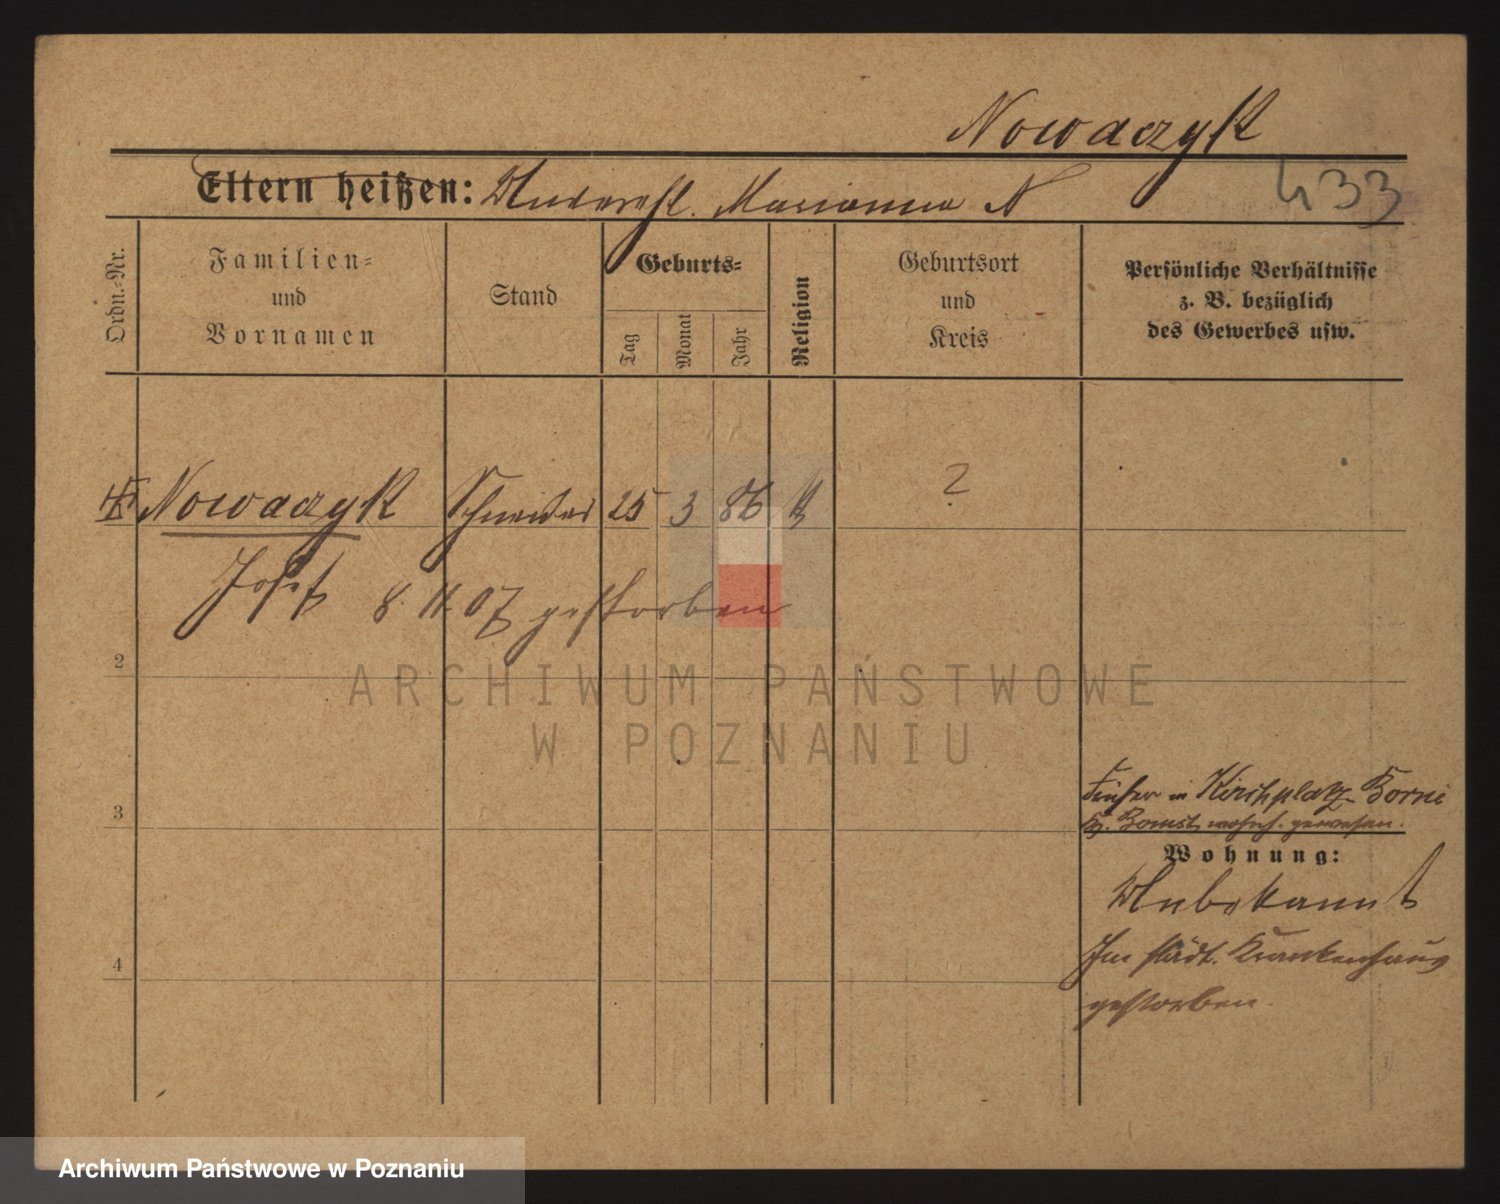 Nowaczyk
433
Eltern heißen: Unverehl. Marianna N
Ordn.-Nr.
Familien-
und
Vornamen
Stand
Geburts-
Tag
Monat
Jahr
Religion
Geburtsort
und
Kreis
Persönliche Verhältnisse
z. B. bezüglich
des Gewerbes usw.
Nowaczyk Schneider 25 3 86 ?
Josef 8. 11. 07 gestorben
2
3
4
Früher in Kirchplatz Borui
Kr. Bomst wohnh. gewesen.
Wohnung:
Unbekannt
Im städt. Krankenhaus
gestorben.
ARCHIWUM PAŃSTWOWE
W POZNANIU
Archiwum Państwowe w Poznaniu